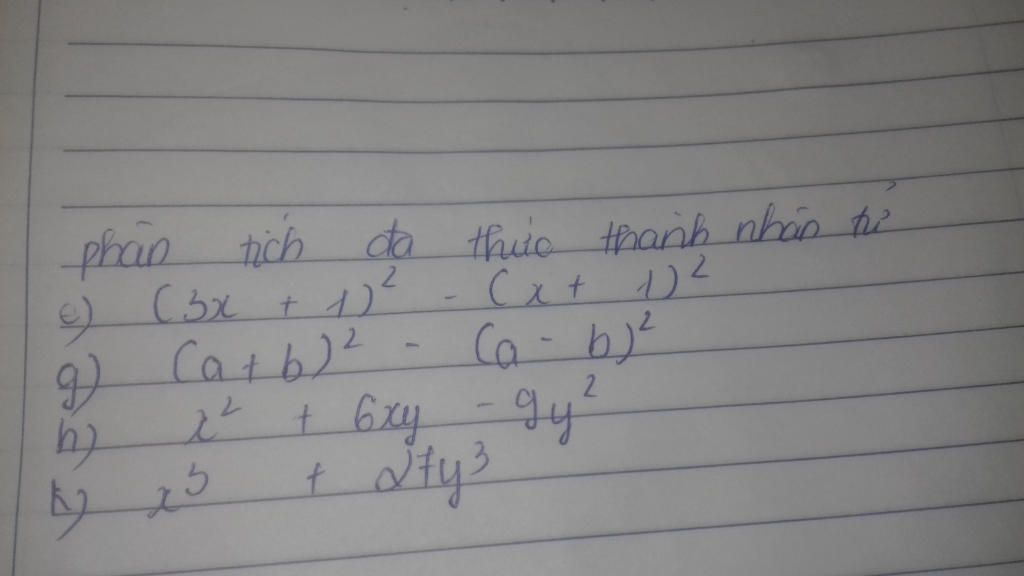 phân tích đa thức thành nhân tử
e) (3x + 1)² - (x + 1)²
g) (a + b)² - (a - b)²
h) x² + 6xy - 9y²
k) x³ + 27y³